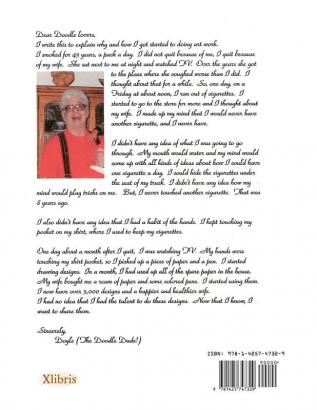 Dear Doodle lovers,
I write this to explain why and how I got started to doing art work.
I smoked for 49 years, a pack a day. I did not quit because of me, I quit because
of my wife. She sat next to me at night and watched TV. Over the years she got
to the place where she coughed worse than I did. I
thought about that for a while. So, one day, on a
Friday at about noon, I ran out of cigarettes. I
started to go to the store for more and I thought about
my wife. I made up my mind that I would never have
another cigarette, and I never have.
I didn't have any idea of what I was going to go
through. My mouth would water and my mind would
come up with all kinds of ideas about how I could have
one cigarette a day. I could hide the cigarettes under
the seat of my truck. I didn't have any idea how my
mind would play tricks on me. But, I never touched another cigarette. That was
8 years ago.
I also didn't have any idea that I had a habit of the hands. I kept touching my
pocket on my shirt, where I used to keep my cigarettes.
One day about a month after I quit, I was watching TV. My hands were
touching my shirt pocket, so I picked up a piece of paper and a pen. I started
drawing designs. In a month, I had used up all of the spare paper in the house.
My wife bought me a ream of paper and some colored pens. I started using them.
I now have over 3,000 designs and a happier and healthier wife.
I had no idea that I had the talent to do these designs. Now that I know, I
want to share them.
Sincerely,
Doyle (The Doodle Dude!)
Xlibris
ISBN: 978-1-4257-4732-9
90000
9 781425 747329